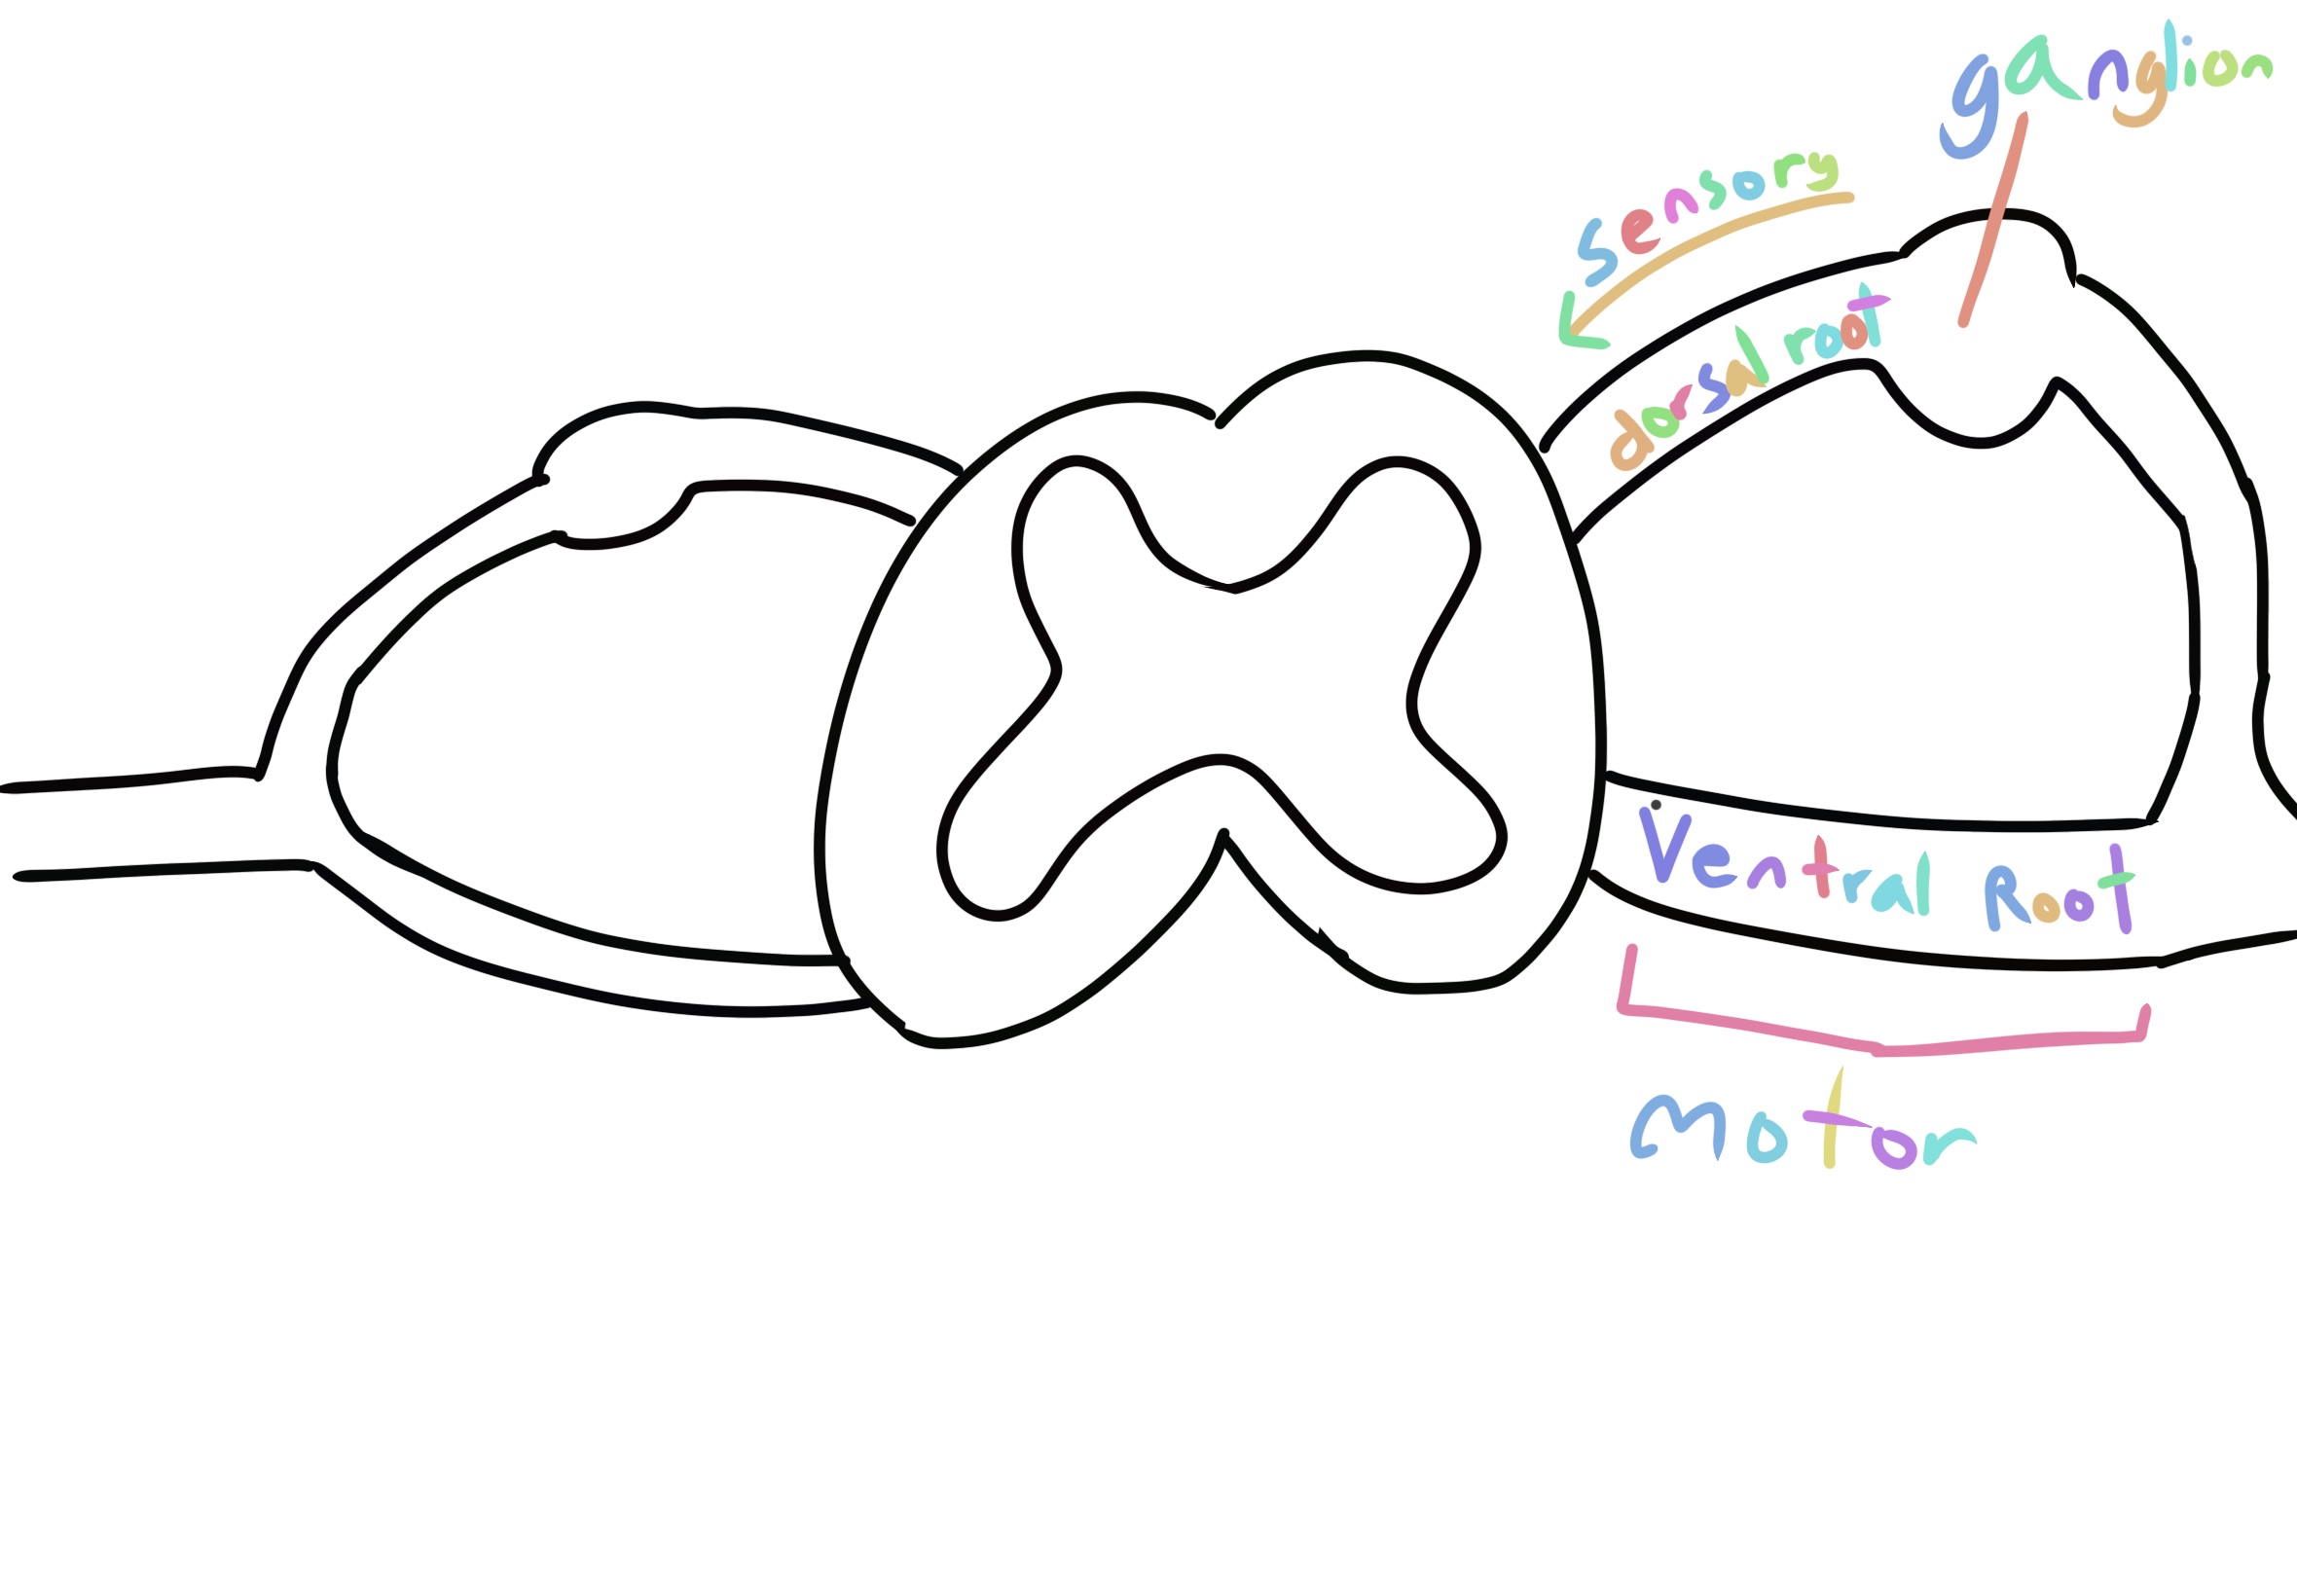 ganglion
sensory
dorsal root
Ventral Root
Motor